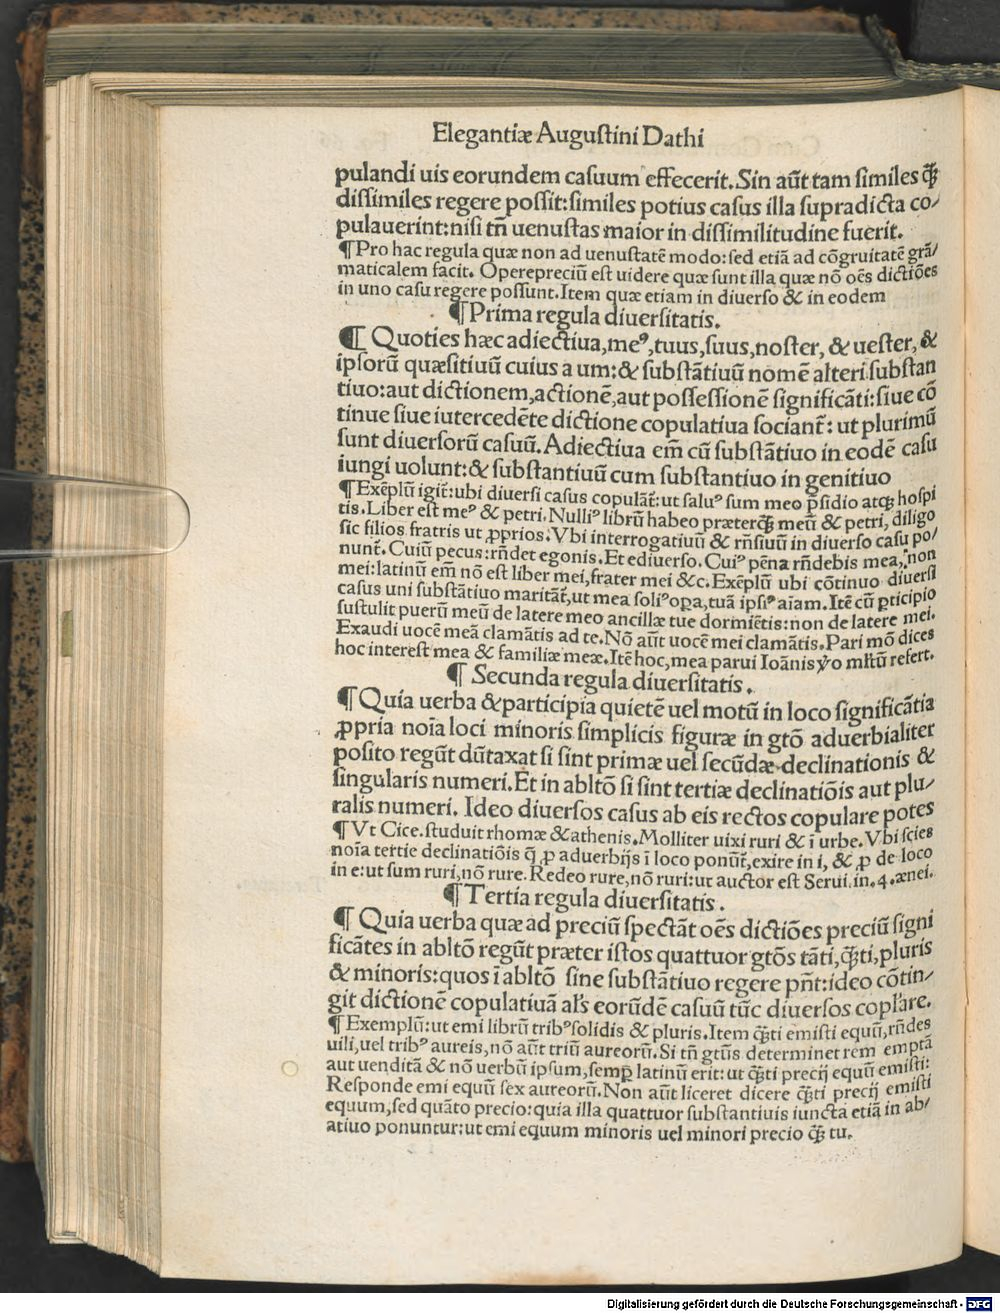 Elegantiæ Augustini Dathi
pulandi uis eorundem casuum effecerit. Sin aūt tam similes ꝙ̄
dissimiles regere possit: similes potius casus illa supradicta co/
pulauerint: nisi tn̄ uenustas maior in dissimilitudine fuerit.
¶ Pro hac regula quæ non ad uenustatē modo: sed etiā ad cōgruitatē grā/
maticalem facit. Opereprecíū est uidere quæ sunt illa quæ nō oēs dictiōes
in uno casu regere possunt. Item quæ etiam in diuerso & in eodem
¶ Prima regula diuersitatis.
¶ Quoties hæc adiectiua, meꝰ, tuus, suus, noster, & uester, &
ipsorū quæsitiuū cuius a um: & substātiuū nomē alteri substan
tiuo: aut dictionem, actionē, aut possessionē significāti: siue cō
tinue siue iutercedēte dictione copulatiua sociant̄: ut plurimū
sunt diuersorū casuū. Adiectiua em̄ cū substātiuo in eodē casu
iungi uolunt: & substantiuū cum substantiuo in genitiuo
¶ Exēplū igit̄: ubi diuersi casus copulāt̄: ut saluꝰ sum meo p̄sidio atcꝫ hospi
tis. Liber est meꝰ & petri. Nulliꝰ librū habeo præterꝙ̄ meū & petri, diligo
sic filios fratris ut ꝓprios. Vbi interrogatiuū & rn̄siuū in diuerso casu po/
nunt̄. Cuiū pecus: rn̄det egonis. Et ediuerso. Cuiꝰ pēna rn̄debis mea, non
mei: latinū em̄ nō est liber mei, frater mei &c. Exēplū ubi cōtinuo diuersi
casus uni substātiuo maritāt̄, ut mea soliꝰ oꝑa, tuā ipsiꝰ aīam. Itē cū ꝑticipio
sustulit puerū meū de latere meo ancillæ tue dormiētis: non de latere mei.
Exaudi uocē meā clamātis ad te. Nō aūt uocē mei clamātis. Pari mō dices
hoc interest mea & familiæ meæ. Itē hoc, mea parui Ioānis ỹo ml̄tū refert.
¶ Secunda regula diuersitatis.
¶ Quia uerba & participia quietē uel motū in loco significātia
ꝓpria noīa loci minoris simplicis figuræ in gtō aduerbialiter
posito regūt dūtaxat si sint primæ uel secūdæ declinationis &
singularis numeri. Et in abltō si sint tertiæ declinatiōis aut plu/
ralis numeri. Ideo diuersos casus ab eis rectos copulare potes
¶ Vt Cice. studuit rhomæ & athenis. Molliter uixi ruri & ī urbe. Vbi scies
noīa tertie declinatiōis q̄ ꝓ aduerbijs ī loco ponūt̄, exire in i, & ꝓ de loco
in e: ut sum ruri, nō rure. Redeo rure, nō ruri: ut auctor est Serui. in. 4. ænei.
¶ Tertia regula diuersitatis.
¶ Quia uerba quæ ad preciū spectāt oēs dictiōes preciū signi
ficātes in abltō regūt præter istos quattuor gtōs tāti, ꝙ̄ti, pluris
& minoris: quos ī abltō sine substātiuo regere pn̄t: ideo cōtin/
git dictionē copulatiuā al's eorūdē casuū tūc diuersos copl'are.
¶ Exemplū: ut emi librū tribꝰ solidis & pluris. Item ꝙ̄ti emisti equū, rn̄des
uili, uel tribꝰ aureis, nō aūt triū aureorū. Si tn̄ gtūs determinet rem emptā
aut uenditā & nō uerbū ipsum, semꝑ latinū erit: ut ꝙ̄ti precij equū emisti:
Responde emi equū sex aureorū. Non aūt liceret dicere ꝙ̄ti precij emisti
equum, sed quāto precio: quia illa quattuor substantiuis iuncta etiā in ab/
atiuo ponuntur: ut emi equum minoris uel minori precio ꝙ̄ tu.
Digitalisierung gefördert durch die Deutsche Forschungsgemeinschaft - DFG